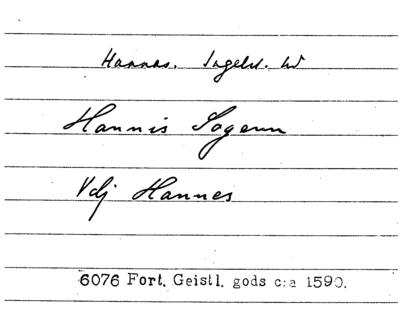 Hannas. Sagelel. hd
Hannis Sagenn
Vdj Hannes
6076 Fort. Geistl. gods c:a 1590.